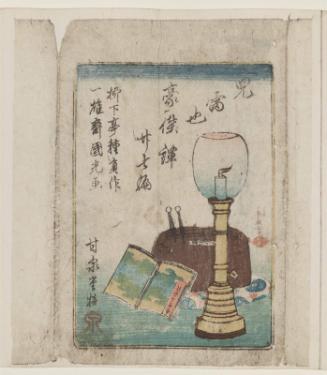 児雷也
豪傑譚
廿七編
柳下亭種員作
一雄齋國光画
甘泉堂梓